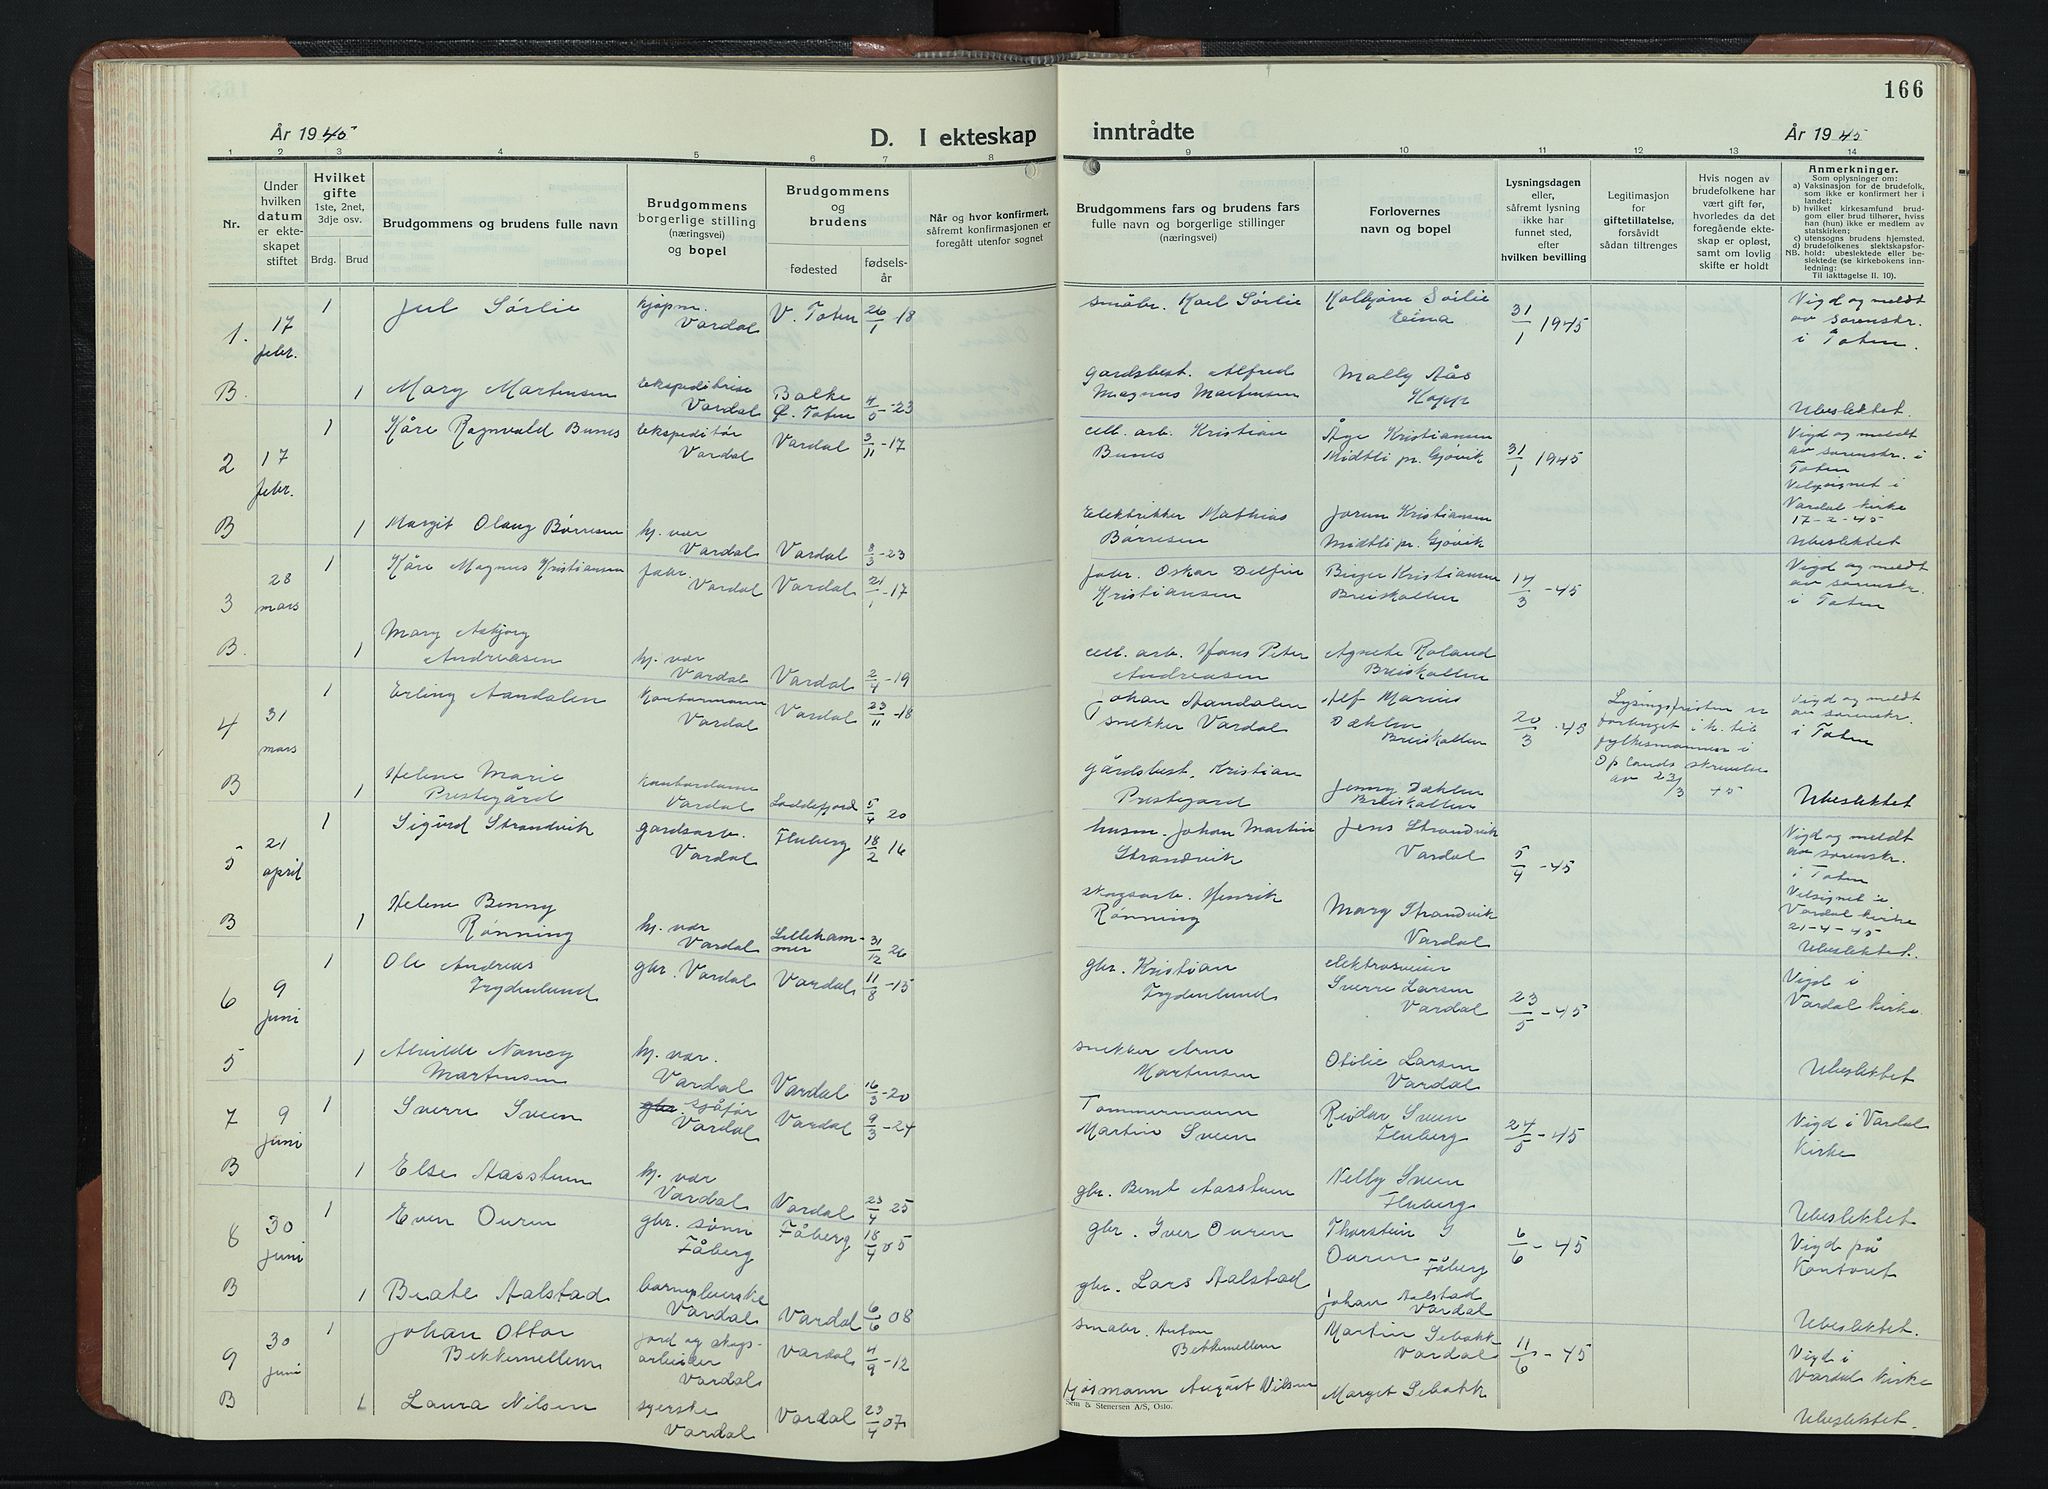 166
År 1945
D. I ekteskap
inntrådte
År 1945
1 2 3 4 5 6 7 8 9 10 11 12 13 14
Nr.
Under hvilken datum er ekteskapet stiftet
Hvilket gifte
1ste, 2net, 3dje osv.
Brdg. Brud
Brudgommens og brudens fulle navn
Brudgommens borgerlige stilling (næringsvei) og bopel
Brudgommens og brudens
fødested
fødselsår
Når og hvor konfirmert, såfremt konfirmasjonen er foregått utenfor sognet
Brudgommens fars og brudens fars fulle navn og borgerlige stillinger (næringsvei)
Forlovernes navn og bopel
Lysningsdagen eller, såfremt lysning ikke har funnet sted, efter hvilken bevilling
Legitimasjon for giftetillatelse, forsåvidt sådan tiltrenges
Hvis nogen av brudefolkene har vært gift før, hvorledes da det foregående ekteskap er opløst, samt om lovlig skifte er holdt
Anmerkninger.
Som oplysninger om:
a) Vaksinasjon for de brudefolk, som ikke er konfirmert her i landet;
b) hvilket kirkesamfund brudgom eller brud tilhører, hvis han (hun) ikke er medlem av statskirken;
c) utensogns brudens hjemsted.
d) brudefolkenes slektskapsforhold: ubeslektede eller beslektede (se kirkebokens innledning:
NB. Til iakttagelse II. 10).
1. 17 febr. 1 Jul Sørlie kjøpm. Vardal V. Toten 26/1-18 småbr. Karl Sørlie Kolbjørn Sørlie Eina 31/1 1945 Vigd og meldt av sorenskr. i Toten.
B. 1 Mary Martensen Ekspeditrise Vardal Balke Ø. Toten 4/5-23 gardsbest. Alfred Magnus Martensen Mally Aås Kapp Ubeslektet.
2 17 febr. 1 Kåre Ragnvald Bunes Ekspeditør Vardal Vardal 3/11-17 cell. arb. Kristian Bunes Åge Kristiansen Midtli pr. Gjøvik 31/1 1945 Vigd og meldt av sorenskr. i Toten Velsignet i Vardal kirke 17-2-45
B 1 Margit Olaug Børresen hj. vær Vardal Vardal 8/3-23 Elektrikker Mathias Børresen Jorun Kristiansen Midtli pr. Gjøvik Ubeslektet
3 28 mars 1 Kåre Magnus Kristiansen fabr. Vardal Vardal 21/1-17 fabr. Oskar Delfin Kristiansen Birger Kristiansen Breiskallen 14/3-45 Vigd og meldt av sorenskr. i Toten
B. 1 Mary Asbjørg Andreasen hj. vær Vardal Vardal 2/4-19 cell. arb. Hans Peter Andreasen Agnete Roland Breiskallen
4 31 mars 1 Erling Aandalen Kontormann Vardal Vardal 23/11-18 Johan Aandalen snekker Vardal Alf Marius Dæhlen Breiskallen 20/3-45 Lysingsfristen er forlenget i h. til fylkesmannen i Oplands skrivelse av 23/3 45 Vigd og meldt av sorenskr. i Toten
B 1 Helene Marie Prestegård Kontordame Vardal Loddefjord 5/4 20 gårdsbest. Kristian Prestegard Jenny Dæhlen Breiskallen Ubeslektet
5 21 april 1 Sigurd Strandvik gardsarb. Vardal Fluberg 18/2 16 husm. Johan Martin Strandvik Jens Strandvik Vardal 5/4-45 Vigd og meldt av sorenskr. i Toten Velsignet i Vardal kirke 21-4-45
B 1 Helene Benny Rønning hj. vær Vardal Lillehammer 31/12 26 skogsarb. Henrik Rønning Mary Strandvik Vardal Ubeslektet.
6 9 juni 1 Ole Andreas Frydenlund gbr. Vardal Vardal 11/8-15 gbr. Kristian Frydenlund elektrosveiser Sverre Larsen Vardal 23/5-45 Vigd i Vardal kirke.
5 1 Alvilde Nancy Martensen hj. vær. Vardal Vardal 16/3-20 snekker Arne Martensen Otilie Larsen Vardal Ubeslektet
7 9 juni 1 Sverre Sveen gbr. sjåfør Vardal Vardal 9/3-24 Tømmermann Martin Sveen Reidar Sveen Fluberg 24/5-45 Vigd i Vardal kirke
B 1 Else Aasstuen hj. vær Vardal Vardal 23/4 25 gbr. Bernt Aasstuen Nelly Sveen Fluberg Ubeslektet
8 30 juni 1 Even Ouren gbr. sønn Fåberg Fåberg 18/4 05 gbr. Iver Ouren Thorstein I Ouren Fåberg 6/6-45 Vigd på Kontoret
B 1 Beate Aalstad barnepleierske Vardal Vardal 6/6 08 gbr. Lars Aalstad Johan Aalstad Vardal Ubeslektet.
9 30 juni 1 Johan Ottar Bekkemellem jord og skogsarbeider Vardal Vardal 4/9-12 småbr. Anton Bekkemellem Martin Sebakk Vardal 11/6-45 Vigd i Vardal kirke
B 1 Laura Nilsen syerske Vardal Vardal 23/4 07 fjøsmann August Nilsen Margit Sebakk Ubeslektet.
Sem & Stenersen A/S, Oslo.